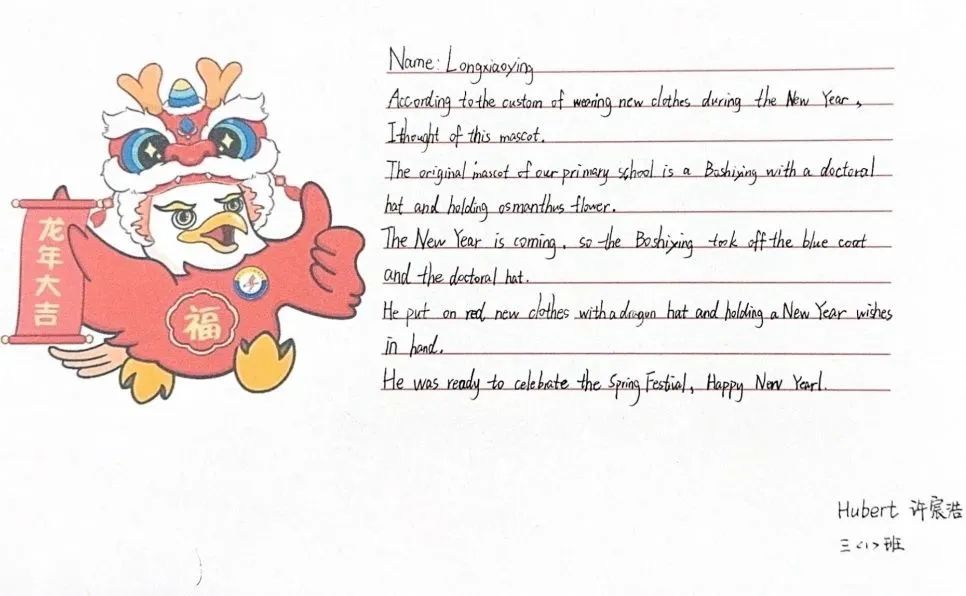 龙年大吉
福
Name: Longxiaoying
According to the custom of wearing new clothes during the New Year,
I thought of this mascot.
The original mascot of our primary school is a Boshiying with a doctoral
hat and holding osmanthus flower.
The New Year is coming, so the Boshiying took off the blue coat
and the doctoral hat.
He put on red new clothes with a dragon hat and holding a New Year wishes
in hand.
He was ready to celebrate the Spring Festival, Happy New Year!.
Hubert 许宸浩
三<1>班